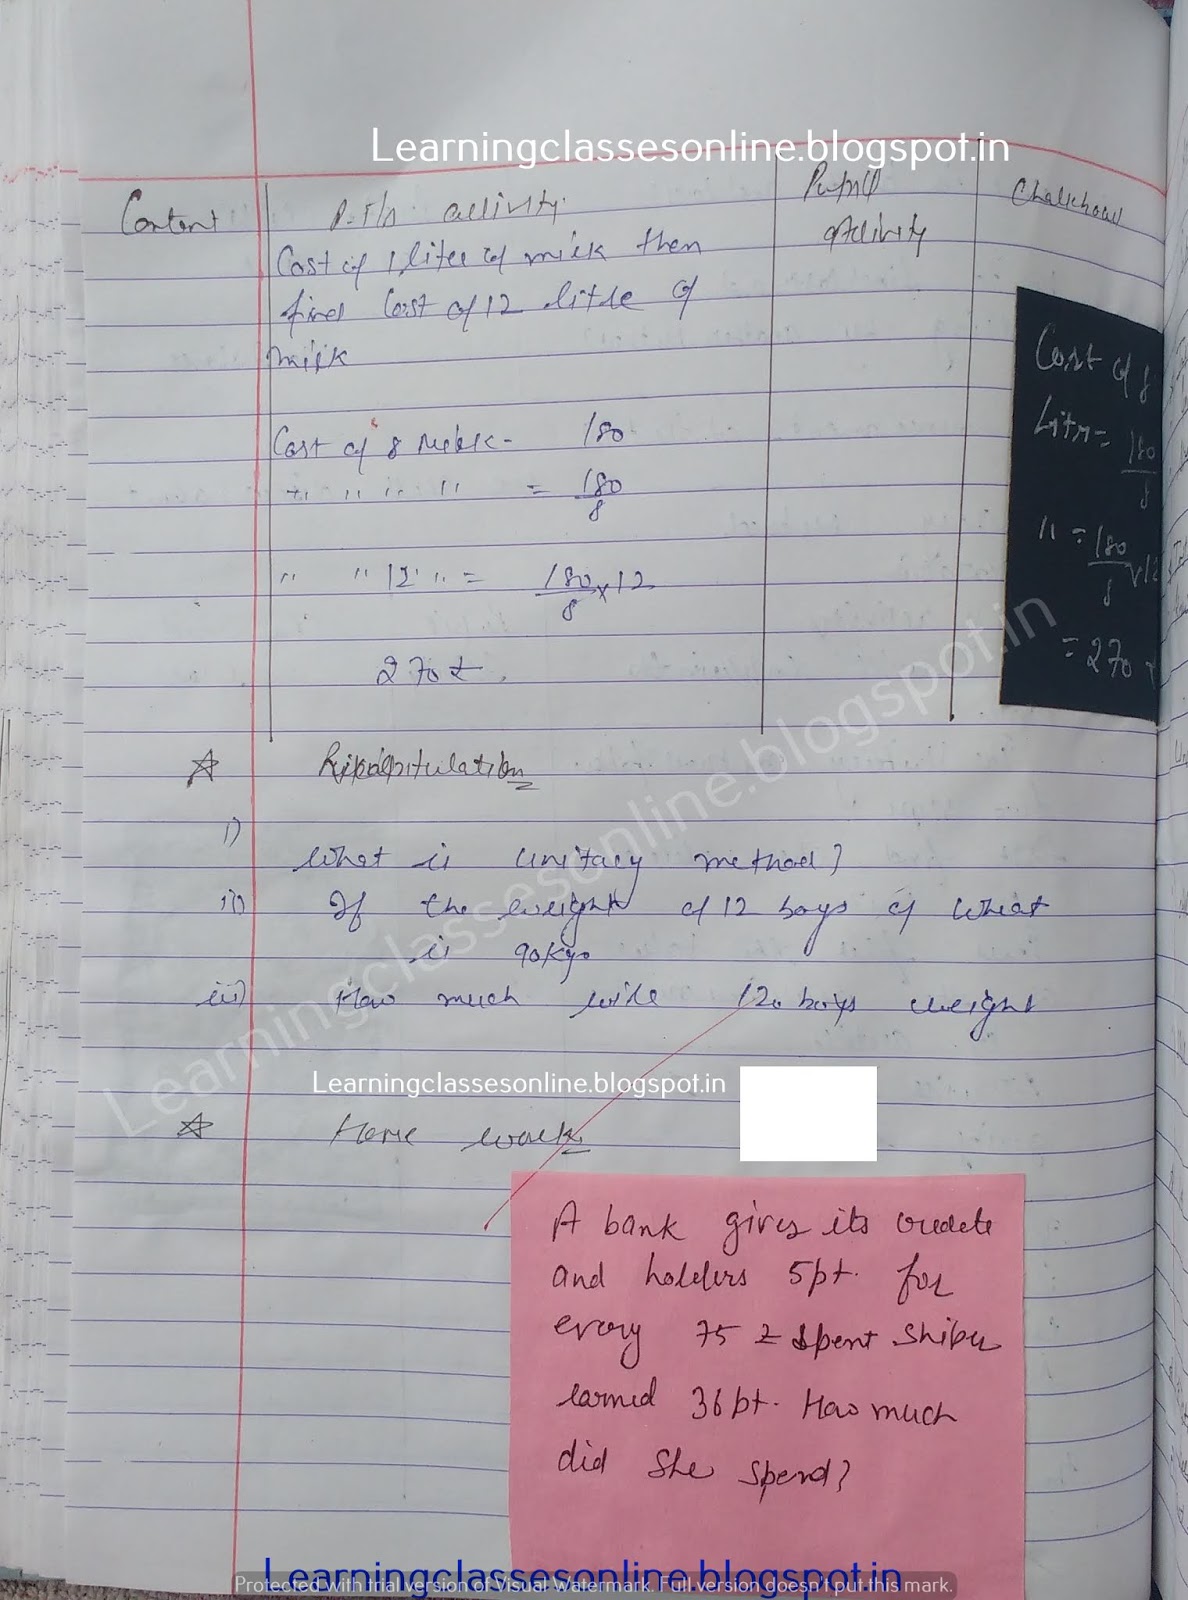 Learningclassesonline.blogspot.in
Content P.T/A activity. Pupil Activity Chalkboad
Cost of 1 liter of milk then
find Cost of 12 litre of
milk
Cost of 8 - 180
" " " " " = 180/8
" " 12 " " = 180/8 x 12
270 ₹.
Cost of 8
Litr = 180/8
" = 180/8 x 12
= 270
Learningclassesonline.blogspot.in
☆ Ripapitulation
i)
What is unitary method?
ii) If the weight of 12 boys of wheat
is 90kg.
iii) How much will 120 boys weight
Learningclassesonline.blogspot.in
☆ Home work
A bank gives its
and holders 5pt. for
every 75 ₹ spent Shibu
earned 36pt. How much
did she spend?
Learningclassesonline.blogspot.in
Protected with trial version of Visual Watermark. Full version doesn't put this mark.